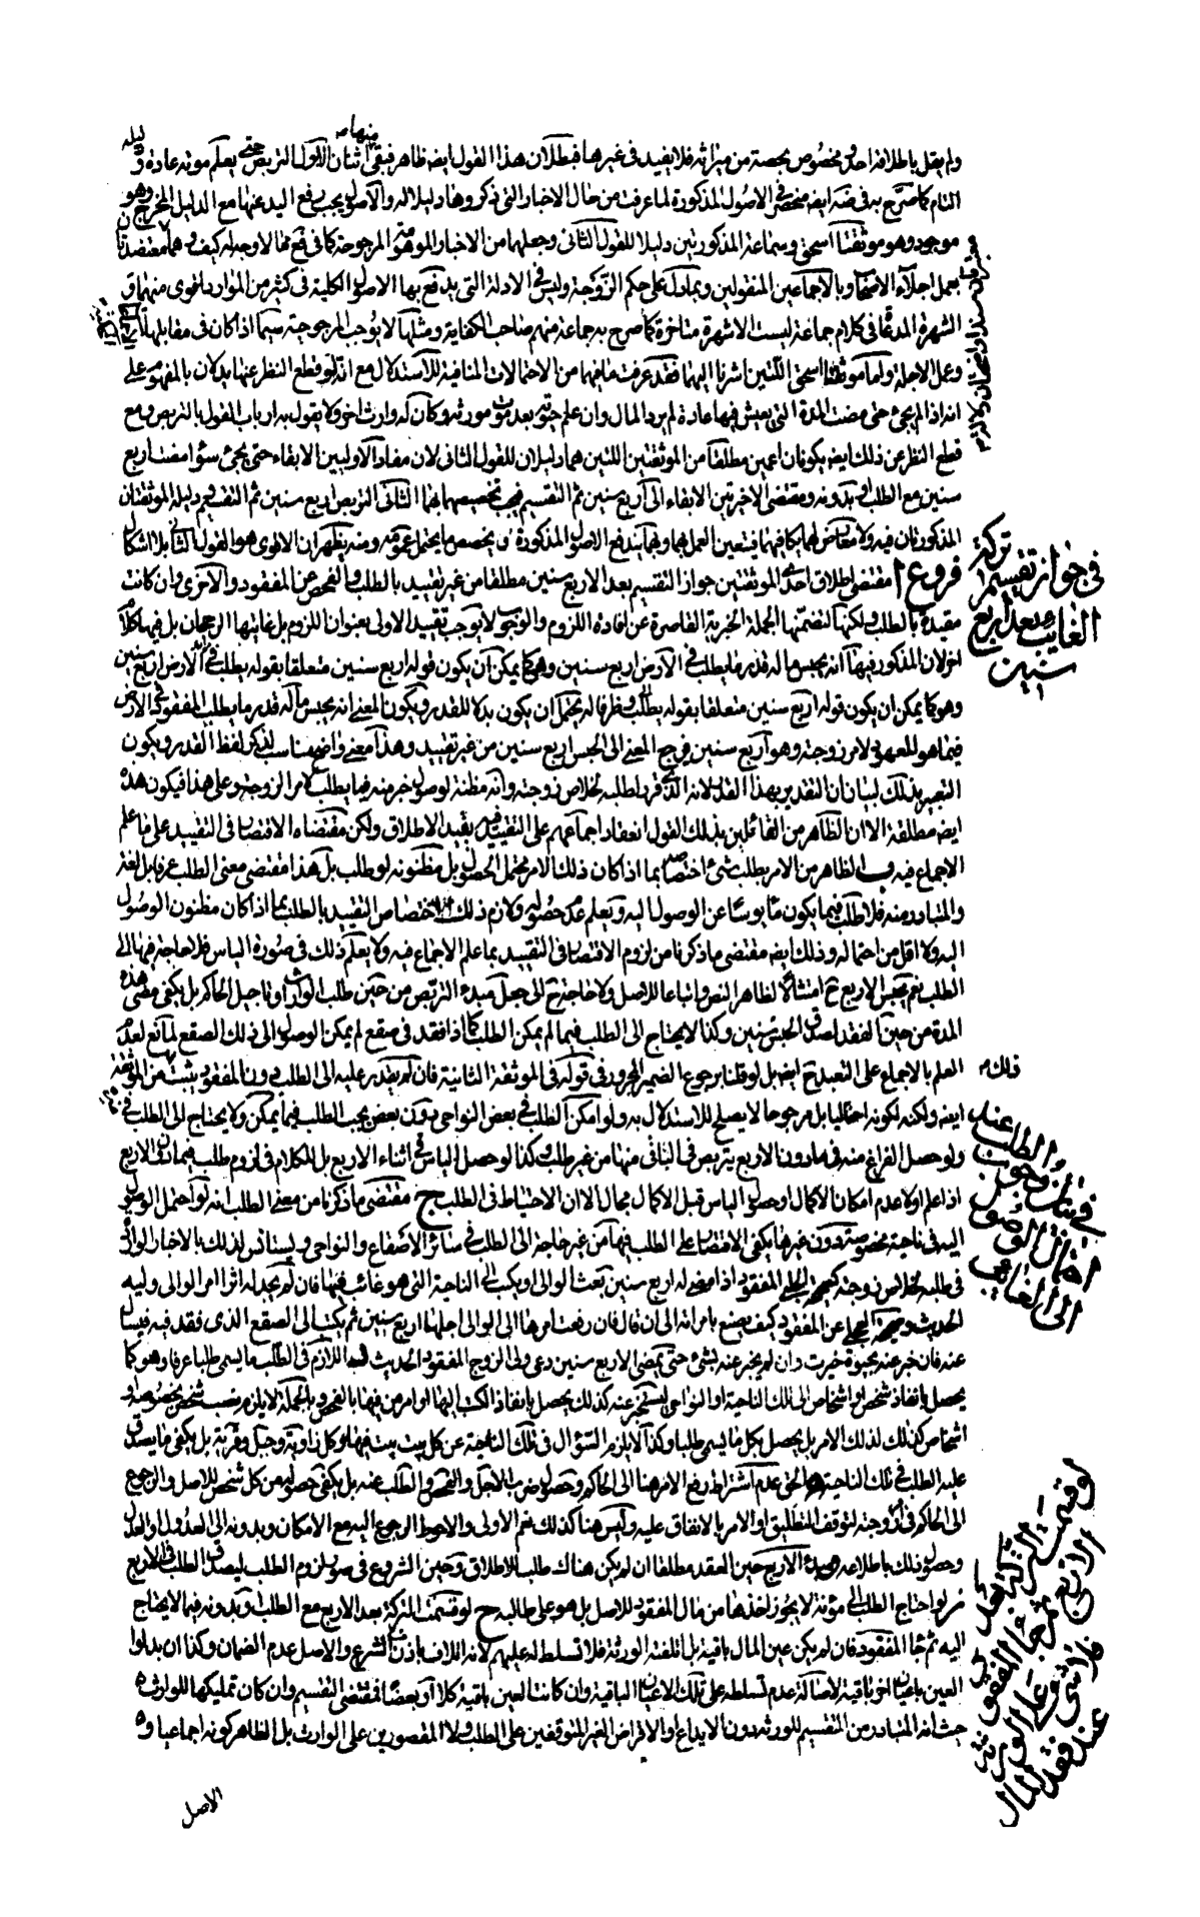 ولم يقل باطلاقه احد ومخصوص بحصة من ميراثه فلا يفيد فى غيرها فبطلان هذا القول ايضا ظاهر فبقى اثنان منها الاول التربص حتى يعلم موته عادة
التام كما صرح به فى ايضا الاصول المذكورة لما عرفت من حال الاخبار التى ذكروها دليلا له والاصول يجب رفع اليد عنها مع الدليل المخرج وهو
موجود وهو موثقتا اسحق وسماعة المذكورتين دليلا للقول الثانى وجعلهما من الاخبار الموهومة المرجوحة كما فى مما لا وجه له كيف وهما معتضدتان
بعمل اجلاء وبالاجماعين المنقولين وبما دل على حكم الزوجة وليس فى الادلة التى يدفع بها الاصول الكلية فى كثير من الموارد اقوى منهما
الشهرة المدعاة فى كلام جماعة ليست الا شهرة متاخرة كما صرح به جماعة منهم صاحب الكفاية ومثلها لا يوجب المرجوحية سيما اذا كان فى مقابلها
وعمل الاجلة واما موثقتا اسحق اللتين اشرنا اليهما فقد عرفت ما فيهما من الاحتمالات المنافية للاستدلال مع انه لو قطع النظر عنها يدلان بالمفهوم على
انه اذا لم يجئ حتى مضت المدة التى يعيش فيها عادة لم يرد المال وان علم حيوته بعد موت مورثه وكان له وارث اخر ولا يقول به ارباب القول بالتربص ومع
قطع النظر عن ذلك ايضا يكونان اعمين مطلقا من الموثقتين اللتين هما دليلان للقول الثانى لان مفاد الاوليين الابقاء حتى يجئ سواء مضت اربع
سنين مع الطلب او بدونه ومقتضى الاخيرتين الابقاء الى اربع سنين ثم التقسيم فيجب تخصيصهما بهما الثانى التربص اربع سنين ثم التقسيم دليله الموثقتان
المذكورتان فيه ولا معارض لهما يكافيهما فيتعين العمل بهما وبهما يندفع الاصول المذكورة ويخصص ما يحتمل عمومه ومنه يظهر ان الاقوى هو القول الثانى بلا اشكال
فروع ا مقتضى اطلاق احدى الموثقتين جواز التقسيم بعد الاربع سنين مطلقا من غير تقييد بالطلب والفحص عن المفقود والاخرى وان كانت
مقيدة بالطلب ولكنها لتضمنها الجملة الخبرية القاصرة عن افادة اللزوم والوجوب لا يوجب تقييد الاولى بعنوان اللزوم بل غايتها الرجحان بل فيها كلام
اخر لان المذكور فيها انه يحبس ماله قدر ما يطلب فى الارض اربع سنين وهو كما يمكن ان يكون قوله اربع سنين متعلقا بقوله يطلب فى الارض اربع سنين
وهو كما يمكن ان يكون قوله اربع سنين متعلقا بقوله يطلب وظرفا له يحتمل ان يكون بدلا للقدر ويكون المعنى انه يحبس ماله قدر ما يطلب المفقود فى الارض
فيما هو المعهود لامر زوجته وهو اربع سنين فيرجع المعنى الى الحبس اربع سنين من غير تقييد وهذا معنى واضح مناسب لذكر لفظ القدر ويكون
التعبير بذلك لبيان ان التقدير بهذا القدر لانه الذى قرر لطلبه لخلاص زوجته وانه مظنة لوصول خبر منه فيما يطلب لامر الزوجة وعلى هذا فيكون هذه
ايضا مطلقة الا ان الظاهر من القائلين بذلك القول انعقاد اجماعهم على التقييد فبه يقيد الاطلاق ولكن مقتضاه الاقتصار فى التقييد على ما علم
الاجماع فيه ب الظاهر من الامر بطلب شئ اختصاصه بما اذا كان ذلك الامر محتمل الحصول بل مظنونه لو طلب بل هذا مقتضى معنى الطلب عرفا بل لغة
والمتبادر منه فلا طلب فيما يكون مأيوسا عن الوصول اليه ويعلم عدم حصوله ولازم ذلك اختصاص التقييد بالطلب بما اذا كان مظنون الوصول
اليه ولا اقل من احتماله وذلك ايضا مقتضى ما ذكرنا من لزوم الاقتصار فى التقييد بما علم الاجماع فيه ولا يعلم ذلك فى صورة الياس فلا حاجة فيها الى
الطلب نعم يحبس الاربع ح امتثالا لظاهر النص واتباعا للاصل ولا حاجة ح الى جعل مبدء التربص من حين طلب الوارث او تاجيل الحاكم بل يكفى مضى هذه
المدة من حين الفقد لصدق الحبس سنين وكذا لا يحتاج الى الطلب فيما لم يمكن الطلب كما اذا فقد فى صقع لم يمكن الوصول الى ذلك الصقع لمانع لعدم
العلم بالاجماع على التعبد ح ايضا بل لو قلنا برجوع الضمير المجرور فى قوله فى الموثقة الثانية فان لم يقدر عليه الى الطلب دون المفقود يثبت من الموثقة ذلك
ايضا ولكنه لكونه احتماليا بل مرجوحا لا يصلح للاستدلال به ولو امكن الطلب فى بعض النواحى دون بعض يجب الطلب فيما يمكن ولا يحتاج الى الطلب فى
ولو حصل الفراغ منه فيما دون الاربع يتربص فى الباقى منها من غير طلب وكذا لو حصل الياس فى اثناء الاربع بل للكلام فى لزوم طلب فيما دون الاربع
اذا علم اولا عدم امكان الاكمال او حصول الياس قبل الاكمال مجال الا ان الاحتياط فى الطلب ج مقتضى ما ذكرنا من معنى الطلب انه لو احتمل الوصول
اليه فى ناحية مخصوصة دون غيرها يكفى الاقتصار على الطلب فيها من غير حاجة الى الطلب فى سائر الاصقاع والنواحى ويستانس لذلك بالاخبار الواردة
فى طلبه لخلاص زوجته الحلبى المفقود اذا مضى له اربع سنين بعث الوالى او يكتب الى الناحية التى هو غائب فيها فان لم يجد له اثرا امر الوالى وليه
الحديث عن المفقود كيف يصنع بامراته الى ان قال فان رفعت امرها الى الوالى اجلها اربع سنين ثم يكتب الى الصقع الذى فقد فيه فيسال
عنه فان خبر عنه بحيوة صبرت وان لم يخبر عنه بشئ حتى تمضى الاربع سنين دعى ولى الزوج المفقود الحديث اللازم فى الطلب ما يسمى طلبا عرفا وهو كما
يحصل بانفاذ شخص او اشخاص الى تلك الناحية او النواحى ليستخبر عنه كذلك يحصل بانفاذ الكتب اليها او امر من فيها بالفحص وبالجملة لا يلزم نصب شخص بخصوصه او
اشخاص كذلك لذلك الامر بل يحصل بكل ما يسمى طلبا وكذا لا يلزم السؤال فى تلك الناحية عن كل بيت بيت فيها او كل زاوية وجبل وقرية بل يكفى ما يصدق
عليه الطلب فى تلك الناحية الحق عدم اشتراط رفع الامر هنا الى الحاكم وحصول ضرب الاجل والفحص والطلب عنه بل يكفى حصوله من كل شخص للاصل والرجوع
الى الحاكم فى الزوجة لتوقف التطليق او الامر بالانفاق عليه وليس هنا كذلك نعم الاولى والاحوط الرجوع اليه مع الامكان وبدونه الى العدول او العدل
وحصول ذلك باطلاعه مبدء الاربع حين الفقد مطلقا ان لم يكن هناك طلب للاطلاق وحين الشروع فى صورة لزوم الطلب ليصدق الطلب فى الاربع
ز لو احتاج الطلب الى مؤنة لا يجوز اخذها من مال المفقود للاصل بل هو على طالبه ح لو قسمت التركة بعد الاربع مع الطلب او بدونه فيما لا يحتاج
اليه ثم جاء المفقود فان لم يكن عين المال باقية بل اتلفته الورثة فلا تسلط له عليهم لانه اتلاف باذن الشرع والاصل عدم الضمان وكذا ان بدلوا
العين باعيان اخر باقية لاصالة عدم تسلطه على تلك الاعيان الباقية وان كانت العين باقية كلا او بعضا فمقتضى التقسيم وان كان تمليكها للوارث
حيث انه المتبادر من التقسيم للورثة دون الايداع والاقراض الغير المتوقفين على الطلب ولا المقصورين على الوارث بل الظاهر كونه اجماعيا و
الاصل
فى جواز تقسيم تركة
الغائب بعد اربع
سنين
فى بيان وجوب الطلب عند
احتمال الوصول
الى الغائب
لو قسمت التركة بعد
الاربع ثم جاء المفقود
فلا شئ على الورثة
عند فقد المال